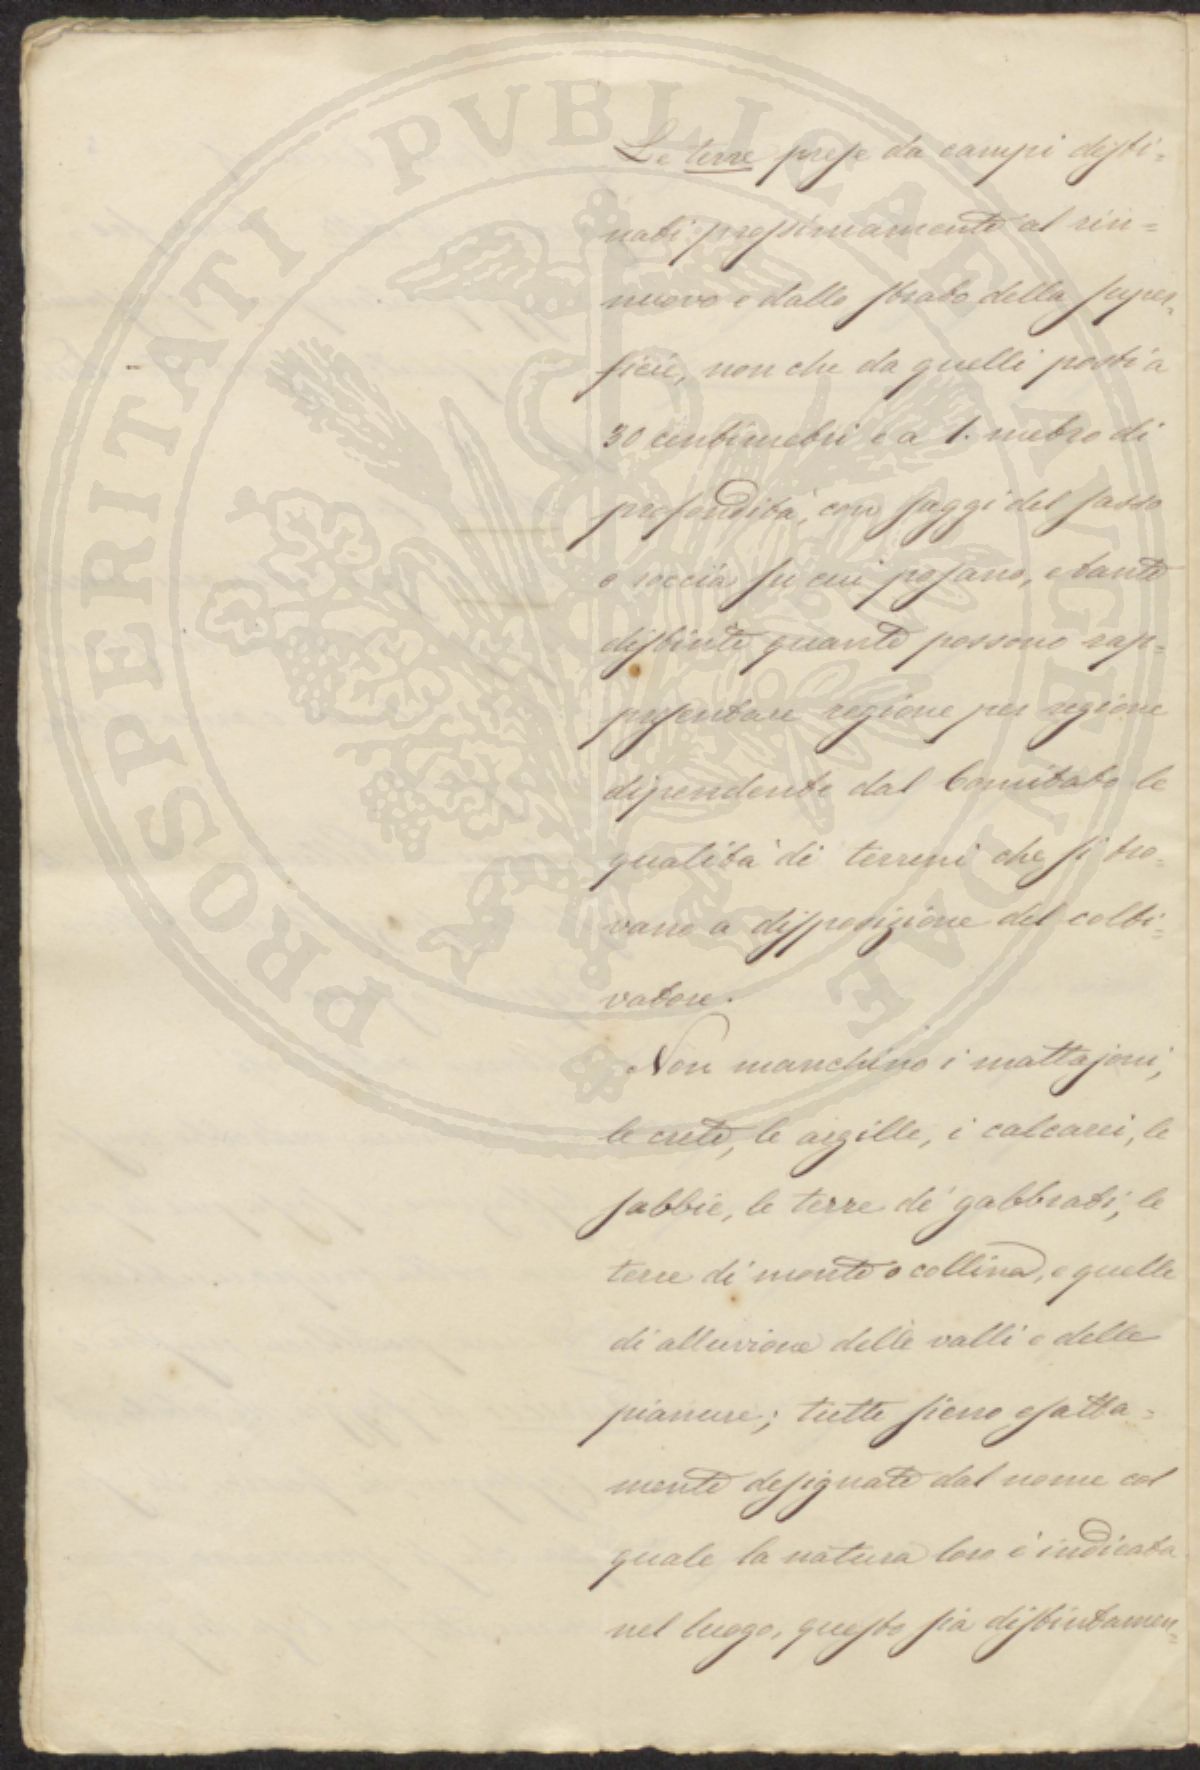 PROSPERITATI PVBLICAE AVGENDAE
Le terre prese da campi desti=
nati prossimamente al rin=
nuovo e dallo strato della super=
ficie, non che da quelli posti a
30 centimetri e a 1. metro di
profondità, con saggi del sasso
o roccia su cui posano, e tante
distinte quante possono rap=
presentare regione per regione
dipendente dal Comitato le
qualità di terreni che si tro=
vano a disposizione del colti=
vatore.
Non manchino i mattajoni,
le crete, le argille, i calcarei, le
sabbie, le terre de' gabbrati; le
terre di monte o collina, e quelle
di alluvione delle valli e delle
pianure; tutte sieno esatta=
mente designate dal nome col
quale la natura loro è indicata
nel luogo, questo sia distintamen=